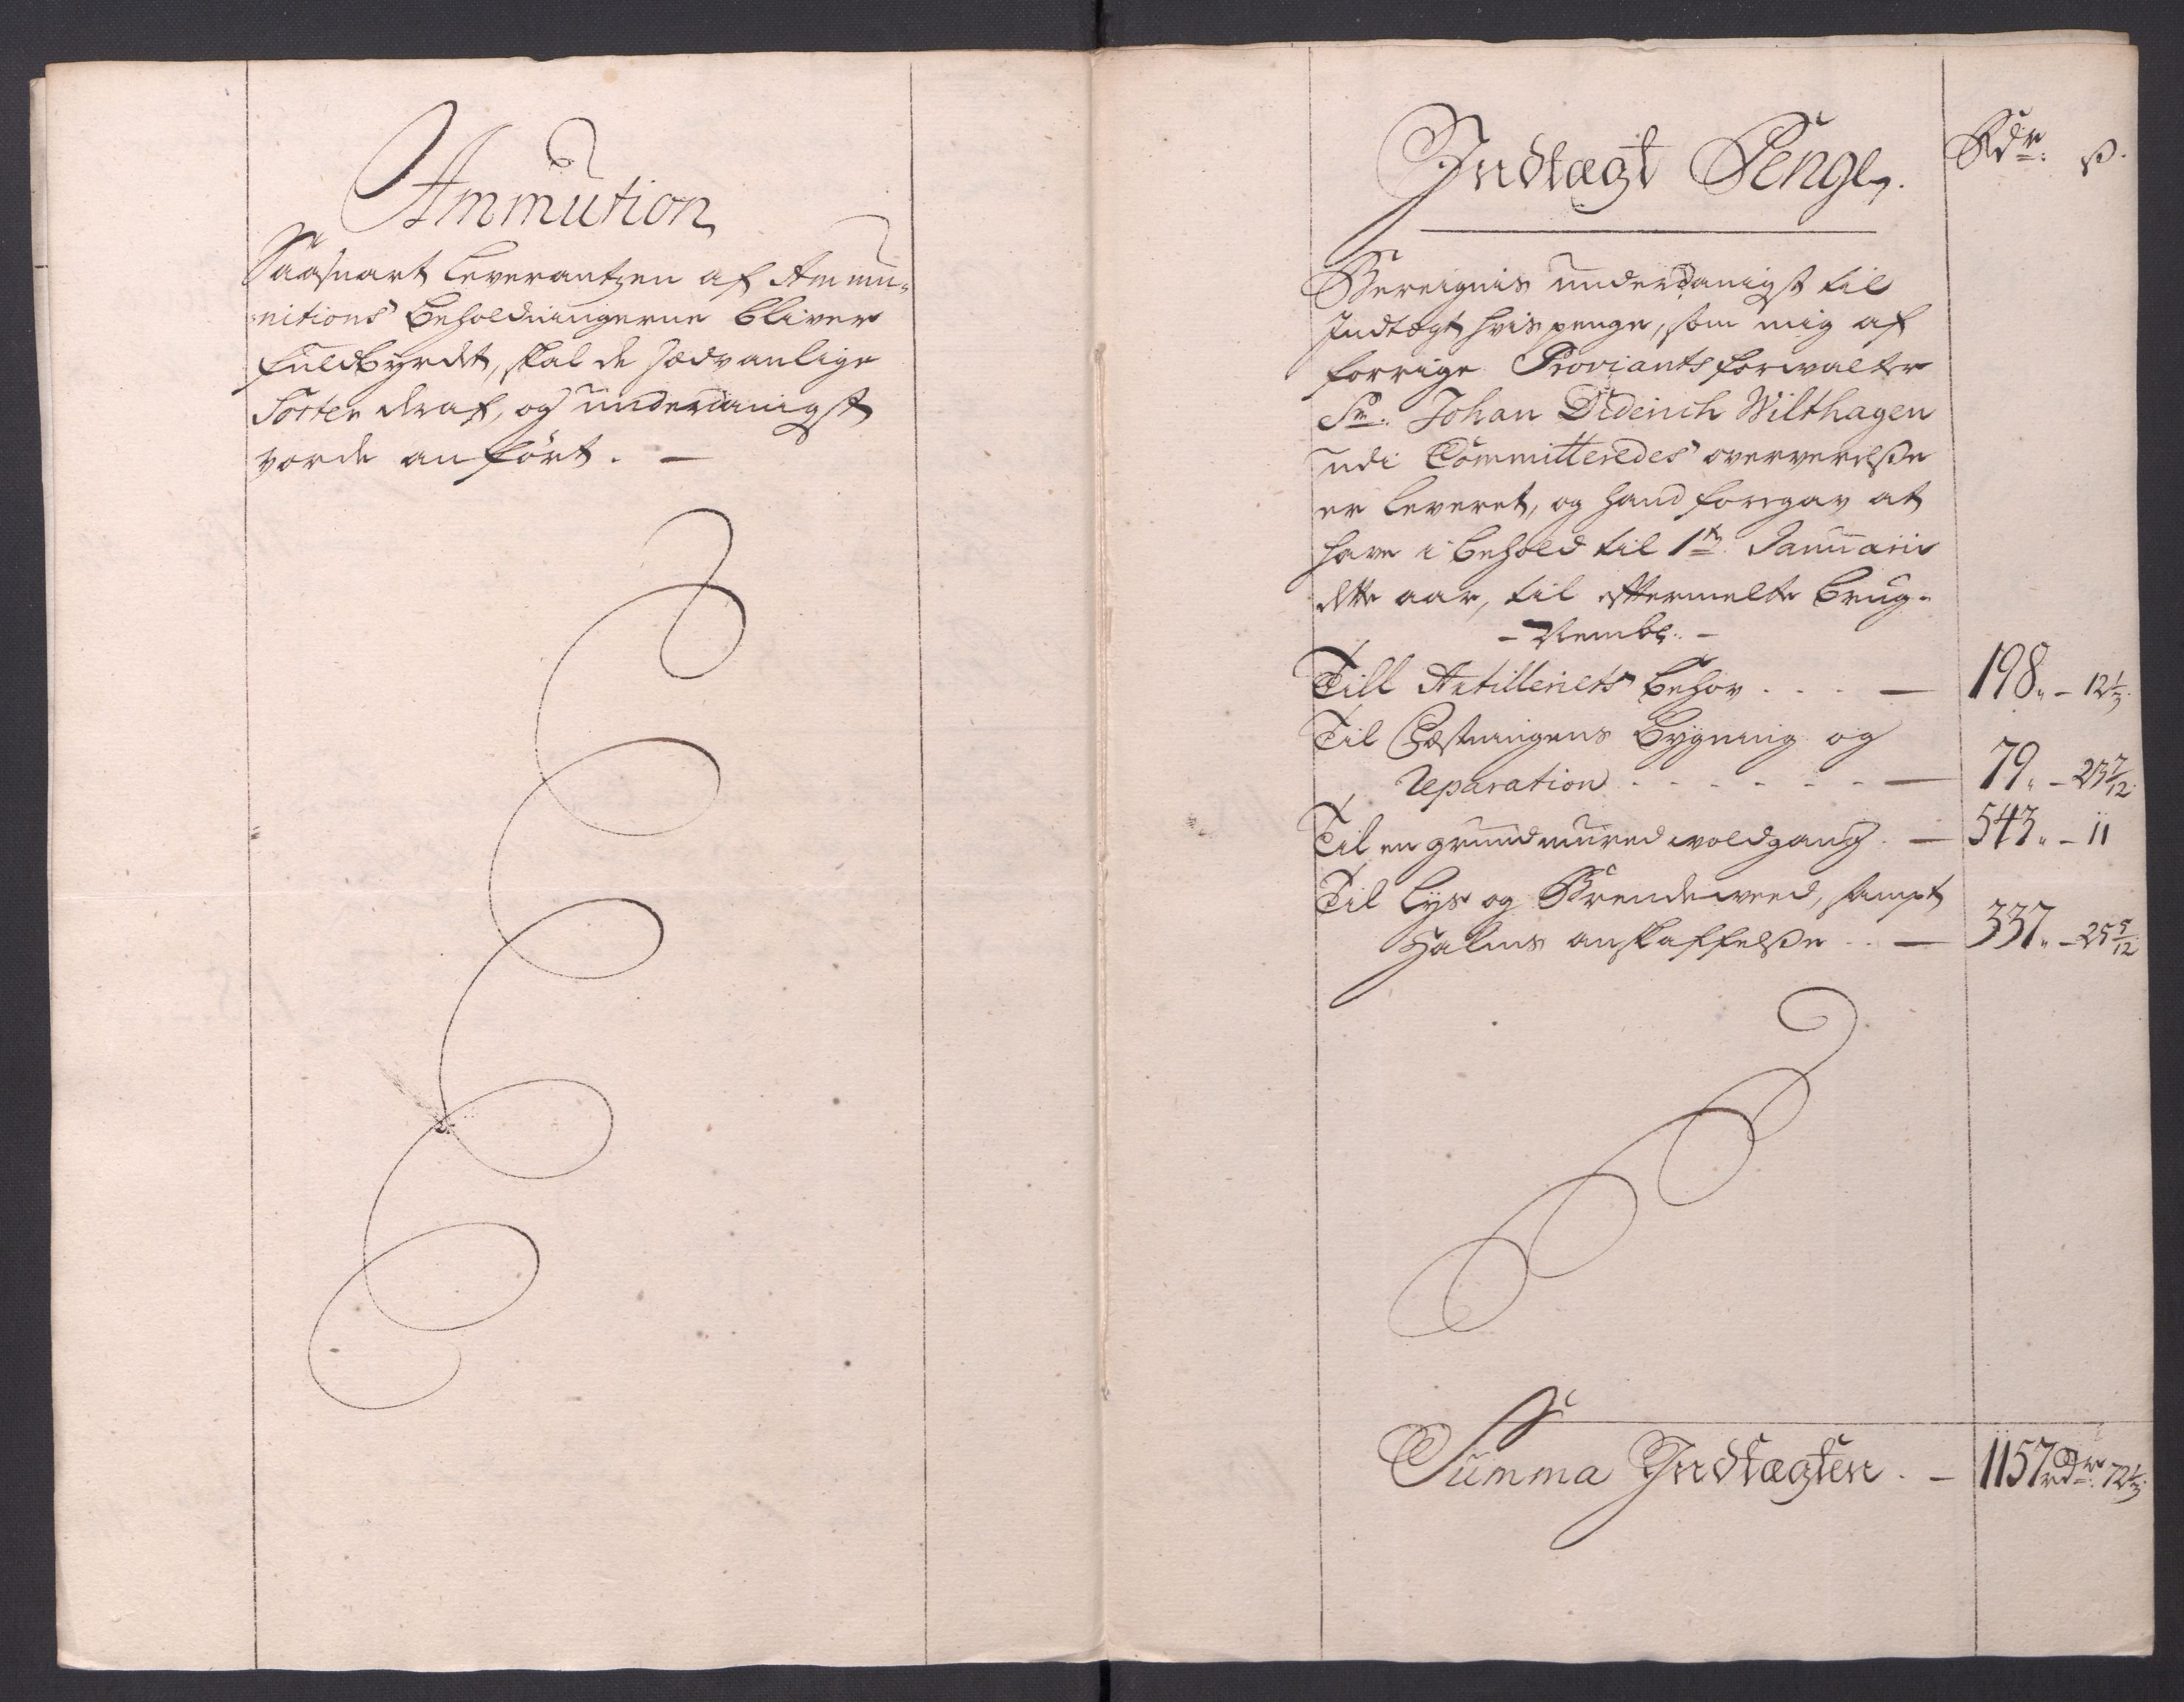 Ammution
Saasnart leverantzen af Ammu-
nitions beholdningerne bliver
fuldbyrdet, skal de sædvanlige
Sorter deraf, og underdanigst
vorde anført. —
Indtægt Penge. Rdr. ß.
Beregnis underdanigst til
Indtægt hvis penge, som mig af
forrige Proviantsforwalter
Sr. Johan Diderich Wilthagen
udi Committeredes oververelße
er leveret, og hand foregav at
have i behold til 1te Januarii
dette aar, til eftermelte brug.
- Nembl. -
Till Artilleriets behov . . . . — 198. - 12½.
Til Fæstningens bygning og
reparation . . . . . . — 79. - 23 7/12.
Til en grundmured woldgang . — 543. - 11
Til lys og Brendeweed, sampt
Halms anskaffelße . . — 337. - 25 5/12
Summa Indtægten . — 1157 rdr. 72½.